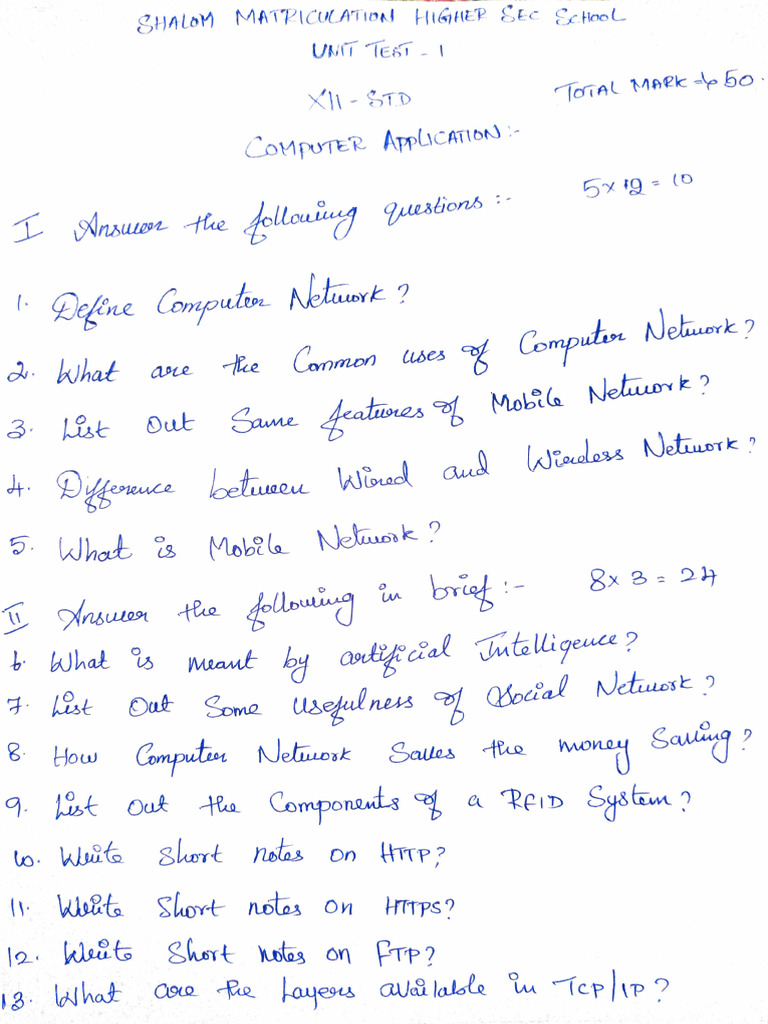 SHALOM MATRICULATION HIGHER SEC SCHOOL
UNIT TEST - 1
XII - STD
TOTAL MARK → 50.
COMPUTER APPLICATION:-
I Answer the following questions:- 5 x 2 = 10
1. Define Computer Network?
2. What are the Common uses of Computer Network?
3. List Out Same features of Mobile Network?
4. Difference between Wired and Wireless Network?
5. What is Mobile Network?
II Answer the following in brief:- 8 x 3 = 24
6. What is meant by artificial Intelligence?
7. List Out Some usefulness of Social Network?
8. How Computer Network Saves the money Saving?
9. List out the Components of a RFID System?
10. Write Short notes on HTTP?
11. Write Short notes on HTTPS?
12. Write Short notes on FTP?
13. What are the Layers available in TCP/IP?